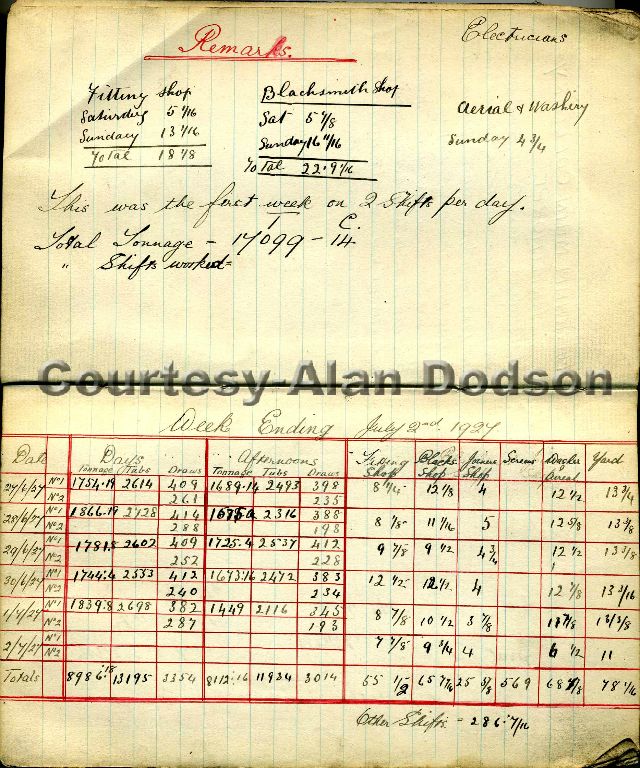 Remarks.
Electricians
Fitting Shop
Saturday 5 1/16
Sunday 13 1/16
Total 18 1/8
Blacksmith Shop
Sat 5 7/8
Sunday 16 11/16
Total 22.9/16
Aerial & Washery
Sunday 4 3/4
This was the first week on 2 Shifts per day.
T C.
Total Tonnage - 17099 - 14
" Shifts worked =
Courtesy Alan Dodson
Week Ending July 2nd 1927
Date Days Afternoons Fitting Shop Blacks Shop Joiners Shop Screens Washer Aerial Yard
Tonnage Tubs Draws Tonnage Tubs Draws
27/6/27 No1 1754.19 2614 409 1689.14 2493 398 8 1/4 12 1/8 4 12 1/2 13 3/4
No2 261 235
28/6/27 No1 1866.19 2728 414 2316 388 8 7/8 11 1/16 5 12 5/8 13 3/8
No2 288 198
29/6/27 No1 1781.8 2602 409 1725.4 2537 412 9 7/8 9 1/2 4 3/4 12 1/2 13 3/8
No2 252 228
30/6/27 No1 1744.4 2553 412 1673.16 2472 383 12 1/2 4 12 7/8 13 3/16
No2 240 234
1/7/27 No1 1839.8 2698 382 1449 2116 345 8 7/8 10 1/2 3 7/8 13 3/8
No2 287 193
2/7/27 No1 7 7/8 9 3/4 4 6 1/2 11
No2
Totals 8986.18 13195 3354 8112.16 11934 3014 55 1/2 65 7/16 25 5/8 569 78 1/16
Other Shifts - 286.7/16